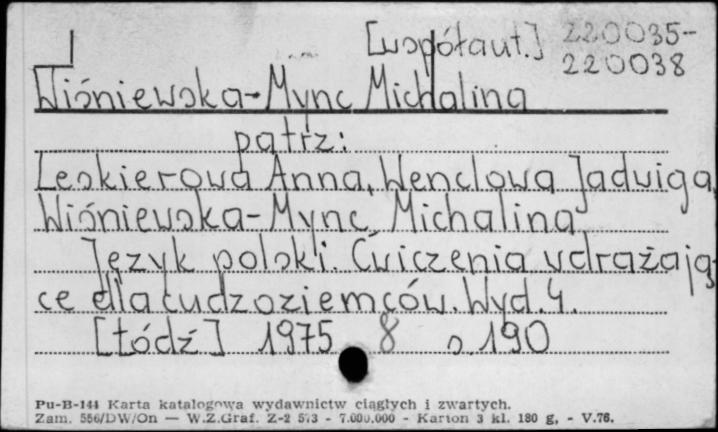 [współaut.] 220035-
220038
Wiśniewska-Mync Michalina
patrz:
Leskierowa Anna, Wenclowa Jadwiga,
Wiśniewska-Mync Michalina
Język polski. Ćwiczenia wdrażają-
ce dla cudzoziemców. Wyd. 4.
[Łódź] 1975 8 s. 190
Pu-B-144 Karta katalogowa wydawnictw ciągłych i zwartych.
Zam. 556/DW/On — W.Z.Graf. Z-2 573 - 7.000.000 - Karton 3 kl. 180 g. - V.76.